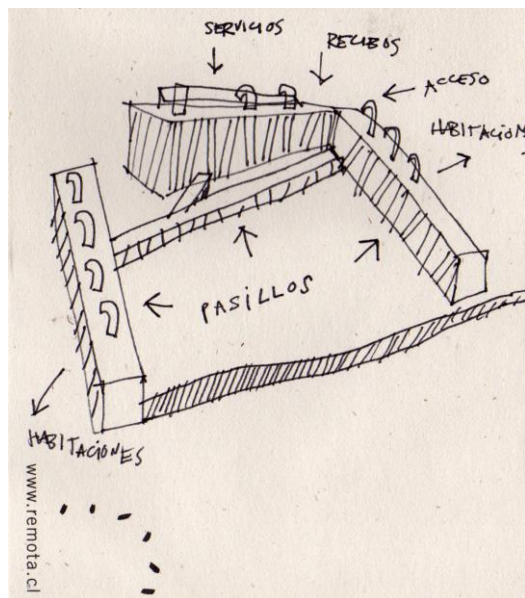 SERVICIOS
RECIBOS
ACCESO
HABITACION
PASILLOS
HABITACIONES
www.remota.cl